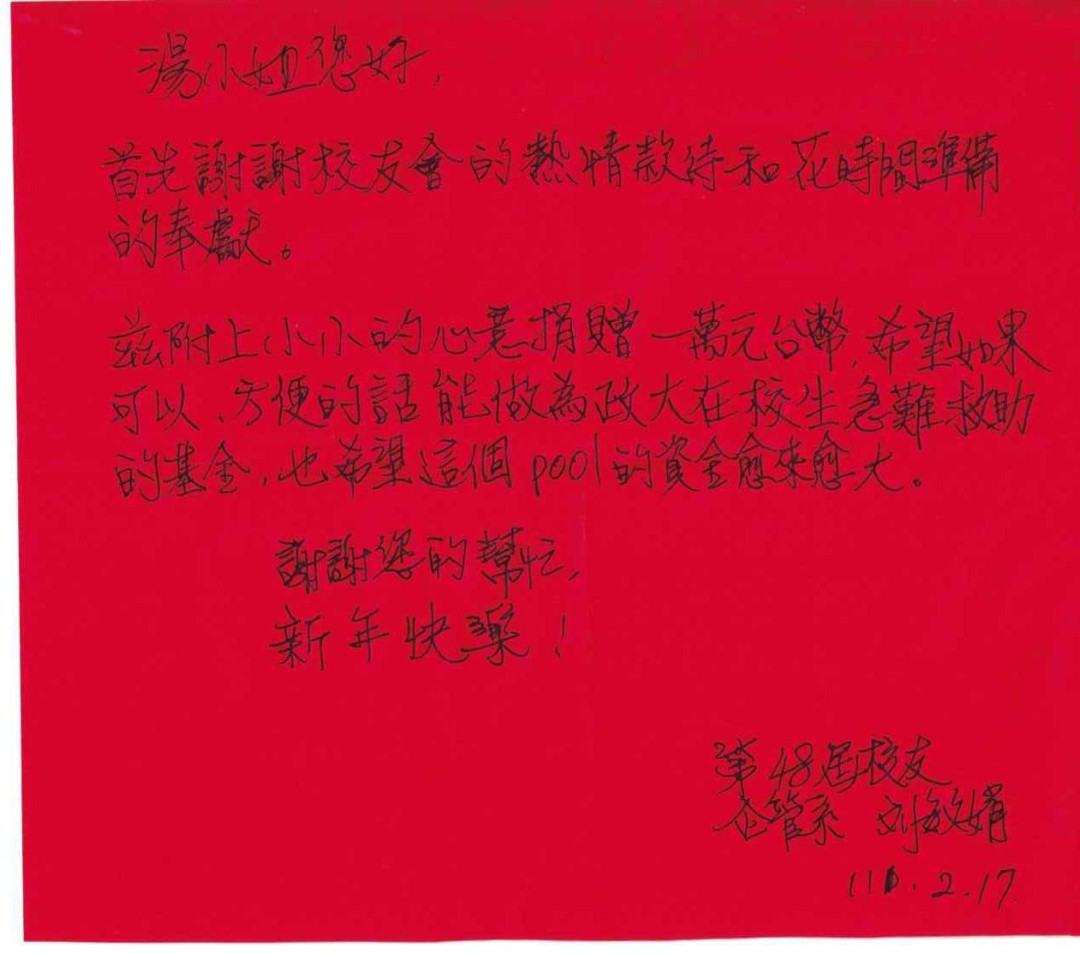 湯小姐您好,
首先謝謝校友會的熱情款待和花時間準備
的奉獻。
茲附上小小的心意捐贈一萬元台幣,希望如果
可以、方便的話能做為政大在校生急難救助
的基金,也希望這個pool的資金愈來愈大。
謝謝您的幫忙,
新年快樂!
第48屆校友
企管系 刘敏娟
110.2.17